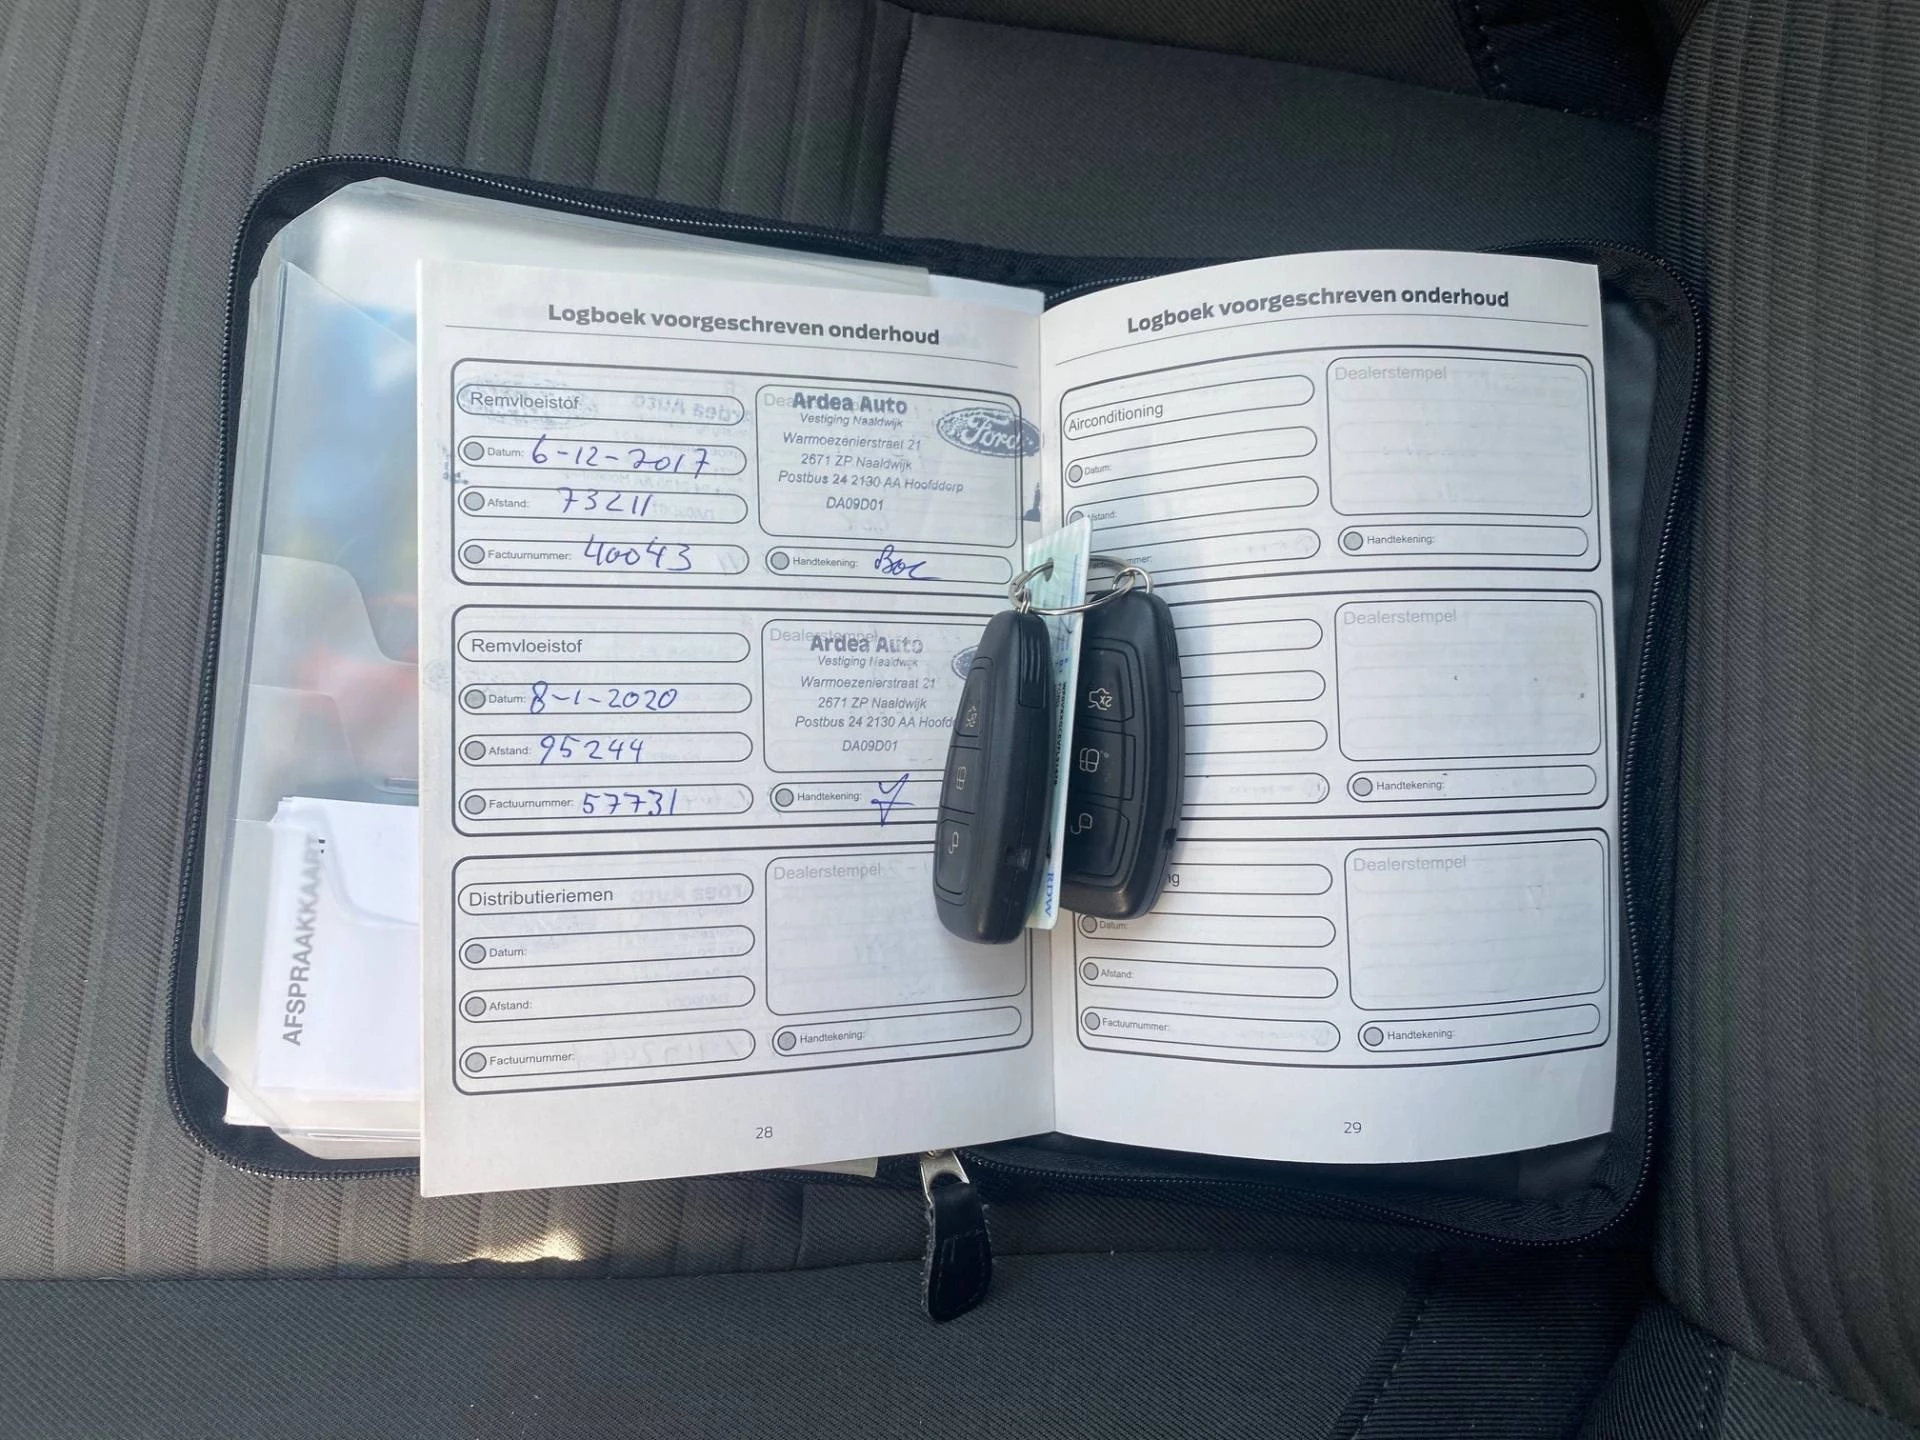 Logboek voorgeschreven onderhoud
Remvloeistof
Datum: 6-12-2017
Afstand: 73211
Factuurnummer: 40043
Ardea Auto
Vestiging Naaldwijk
Warmoezenierstraat 21
2671 ZP Naaldwijk
Postbus 24 2130 AA Hoofddorp
DA09D01
Ford
Handtekening:
Remvloeistof
Datum: 8-1-2020
Afstand: 95244
Factuurnummer: 57731
Dealerstempel
Ardea Auto
Vestiging Naaldwijk
Warmoezenierstraat 21
2671 ZP Naaldwijk
Postbus 24 2130 AA Hoofd
DA09D01
Handtekening:
Distributieriemen
Datum:
Afstand:
Factuurnummer:
Dealerstempel
Handtekening:
28
AFSPRAAKKAART
Logboek voorgeschreven onderhoud
Airconditioning
Datum:
Afstand:
mmer:
Dealerstempel
Handtekening:
Dealerstempel
Handtekening:
ng
Datum:
Afstand:
Factuurnummer:
Dealerstempel
Handtekening:
29
2x
RDW